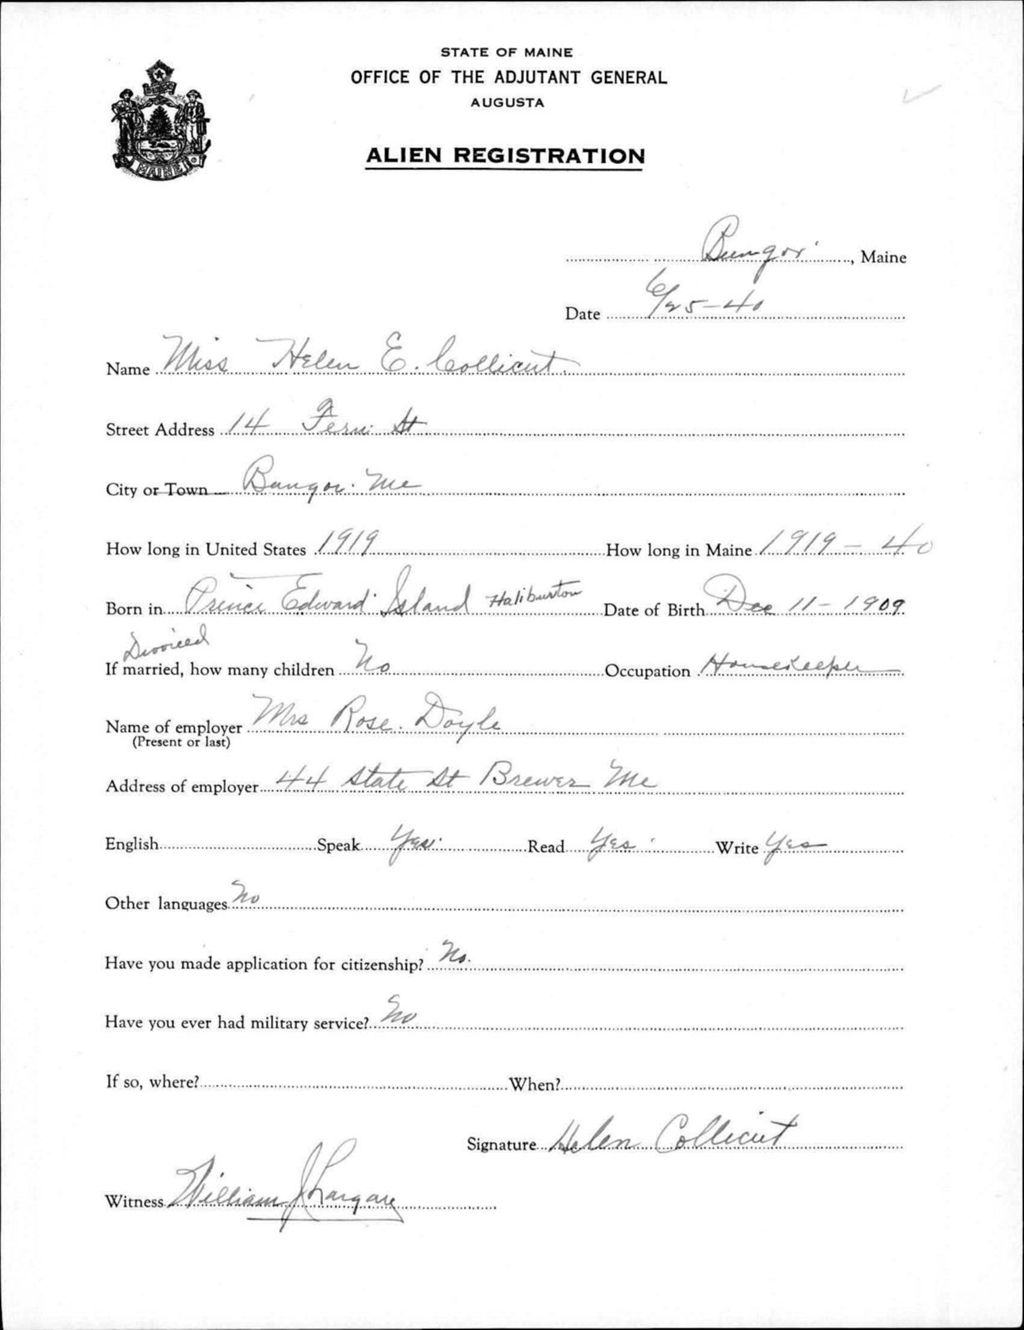 STATE OF MAINE
OFFICE OF THE ADJUTANT GENERAL
AUGUSTA
ALIEN REGISTRATION
MAINE
Bangor, Maine
Date 6/25-40
Name Miss Helen E. Collicut.
Street Address 14 Fern St
City or Town Bangor. Me
How long in United States 1919 How long in Maine 1919 - 40
Born in Prince Edward Island Haliburton Date of Birth Dec 11-1909
Divorced
If married, how many children No Occupation Housekeeper
Name of employer Mrs Rose. Doyle
(Present or last)
Address of employer 44 State St Brewer Me
English Speak Yes. Read Yes. Write Yes
Other languages No
Have you made application for citizenship? No.
Have you ever had military service? No
If so, where? When?
Signature Helen Collicut
Witness William J